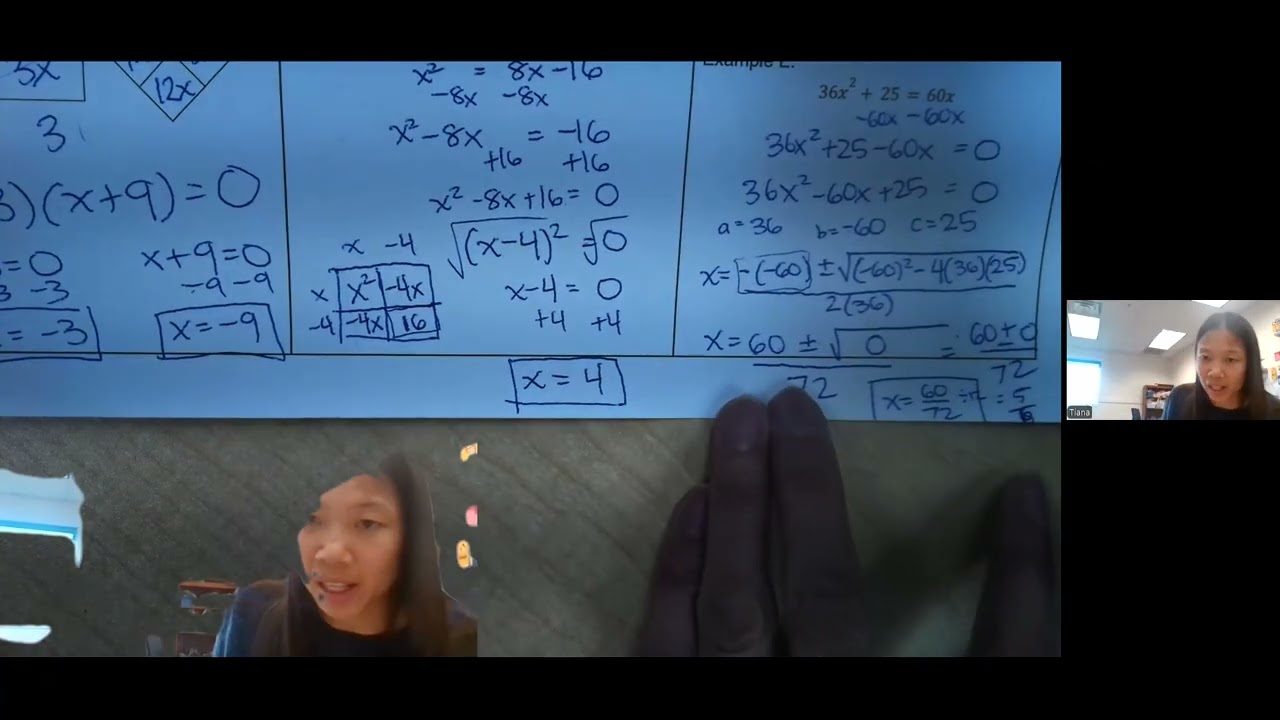 5x
12x
3
3)(x+9) = 0
= 0
x+9=0
3 -3
-9 -9
= -3
x = -9
x² = 8x - 16
-8x -8x
x² - 8x = -16
+16 +16
x² - 8x + 16 = 0
√(x-4)² = √0
x - 4 = 0
+4 +4
x = 4
x -4
x x² -4x
-4 -4x 16
Example E:
36x² + 25 = 60x
-60x -60x
36x² + 25 - 60x = 0
36x² - 60x + 25 = 0
a = 36 b = -60 c = 25
x = -(-60) ± √(-60)² - 4(36)(25)
2(36)
x = 60 ± √0 = 60 ± 0
72 72
x = 60/72 = 5/6
Tiana